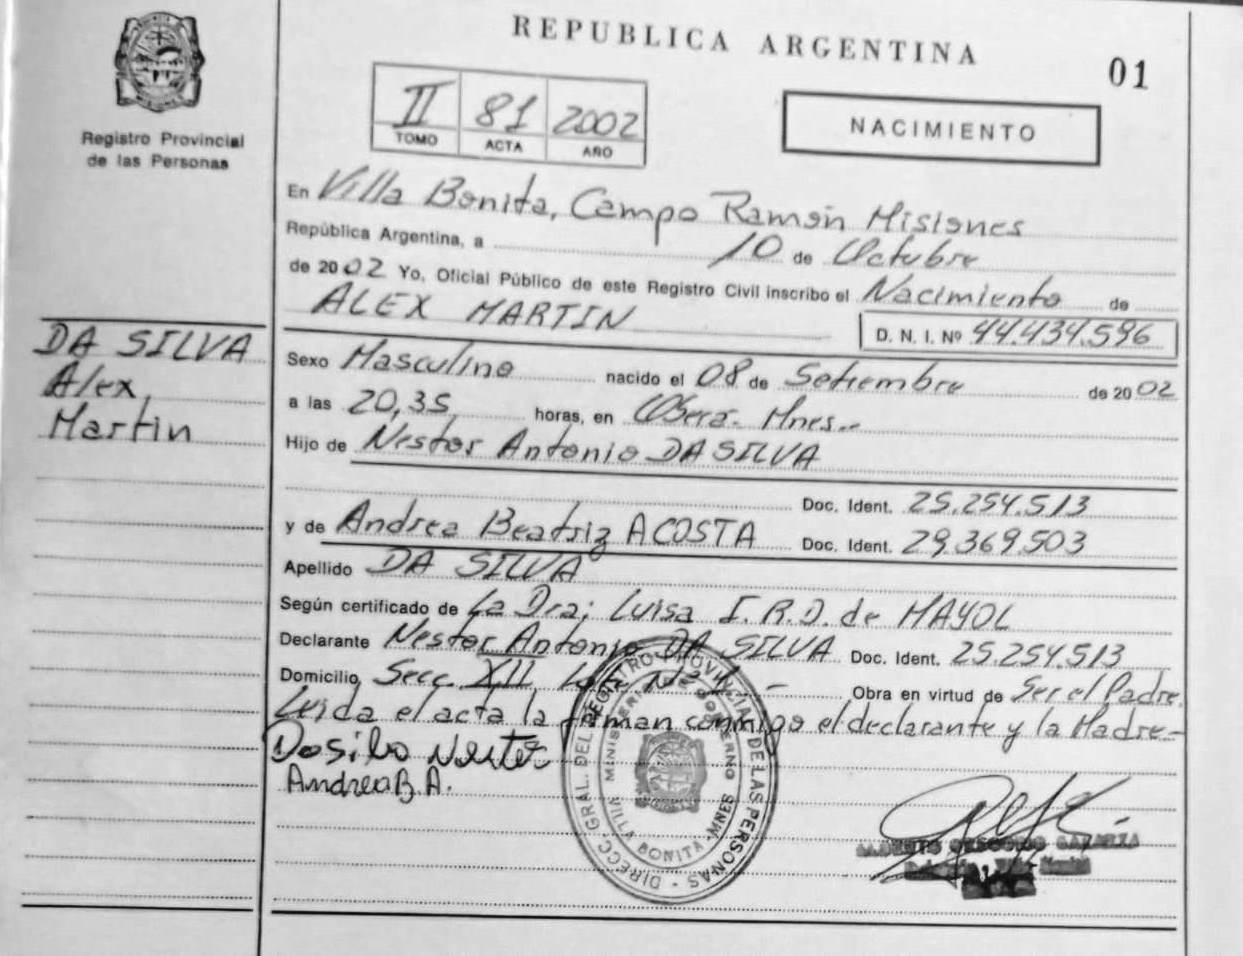 REPUBLICA ARGENTINA
01
Registro Provincial
de las Personas
II 81 2002
TOMO ACTA AÑO
NACIMIENTO
En Villa Bonita, Campo Ramón Misiones
República Argentina, a 10 de Octubre
de 2002 Yo, Oficial Público de este Registro Civil inscribo el Nacimiento de
ALEX MARTIN
D. N. I. Nº 44.434.596
DA SILVA
Alex
Martin
Sexo Masculino nacido el 08 de Setiembre de 2002
a las 20,35 horas, en Oberá - Mnes.-
Hijo de Nestor Antonio DA SILVA
Doc. Ident. 25.254.513
y de Andrea Beatriz ACOSTA Doc. Ident. 29.369.503
Apellido DA SILVA
Según certificado de La Dra; Luisa I. R. D. de MAYOL
Declarante Nestor Antonio DA SILVA Doc. Ident. 25.254.513
Domicilio Secc. XII Lote Nº Obra en virtud de Ser el Padre.
Leida el acta la firman conmigo el declarante y la Madre-
Dasilva Nestor
Andrea B. A.
DIRECC. GRAL. DEL REGISTRO PROVINCIAL DE LAS PERSONAS
MINISTERIO DE GOBIERNO
VILLA BONITA MNES